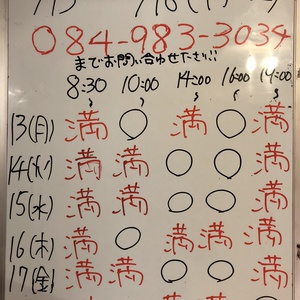 084-983-3034
までお問い合わせださい!!
8:30 10:00 14:00 16:00 19:00
13(月) 満 ○ 満 ○ 満
14(火) 満 満 ○ ○ 満
15(水) 満 満 ○ ○ 満
16(木) 満 ○ 満 満 満
17(金) 満 満 ○ ○ 満